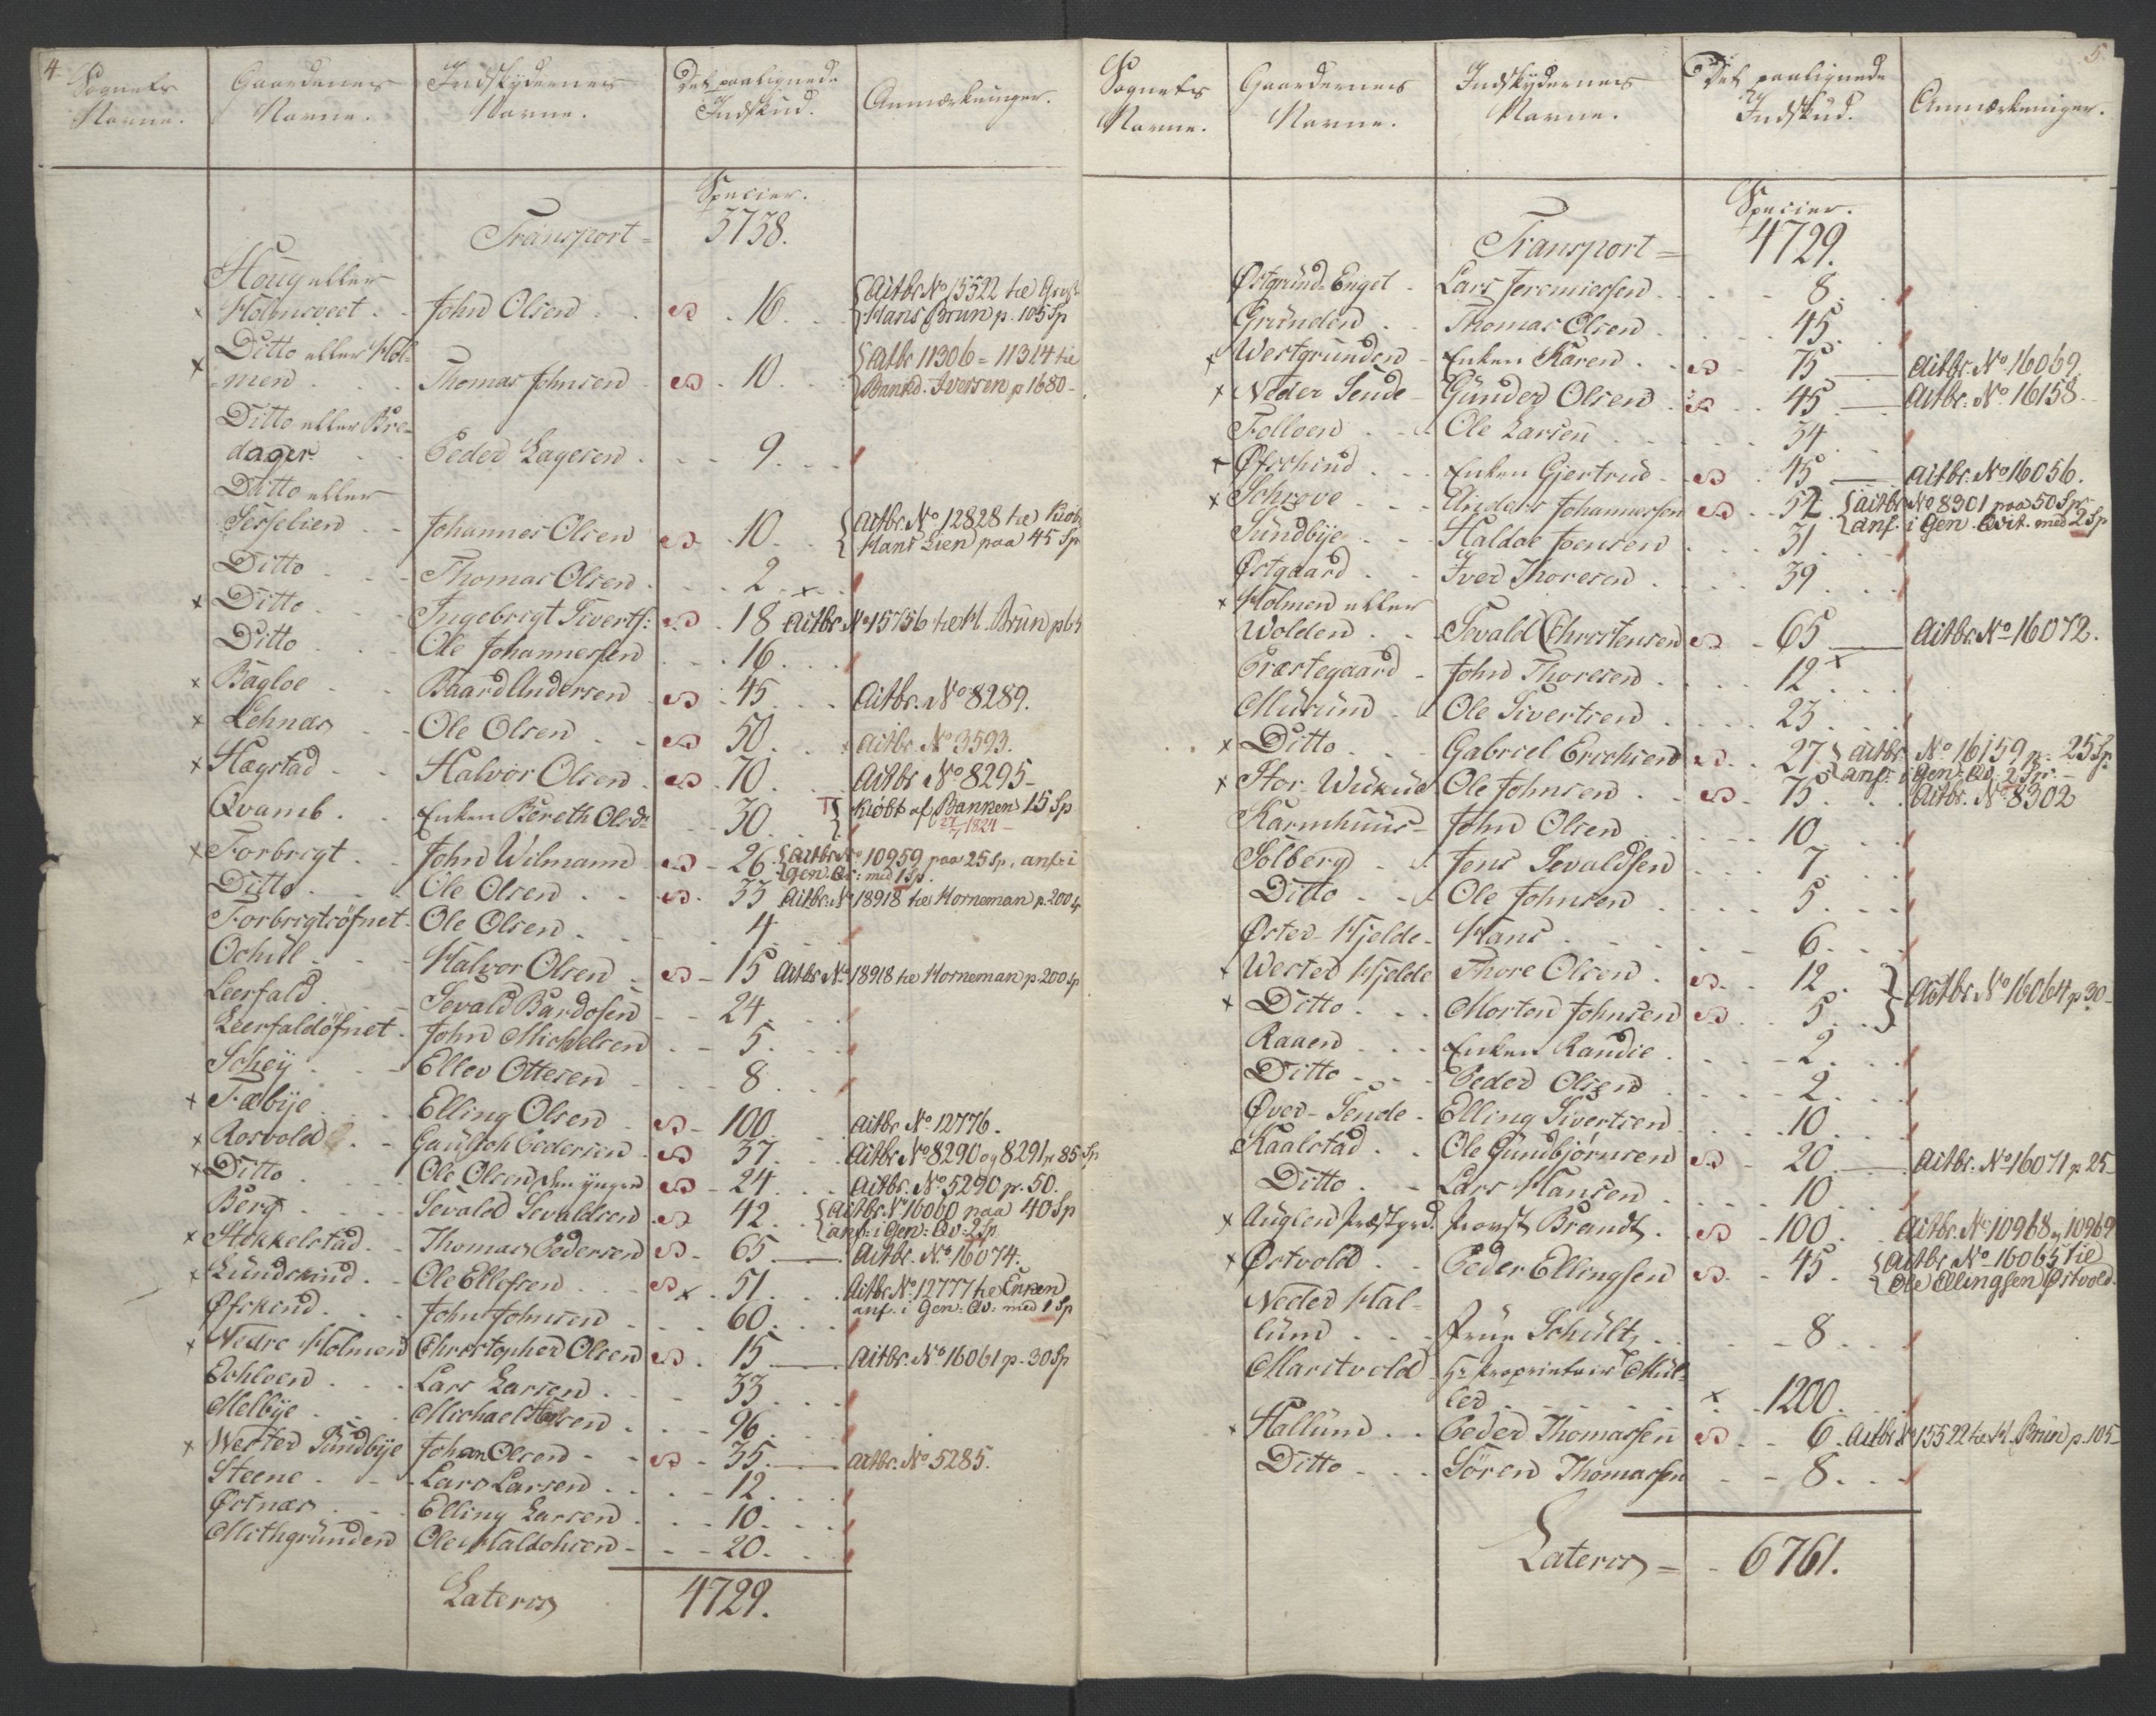 4
Sognets Navne.
Gaardenes Navne.
Indskydernes Navne.
Det paalignede Indskud.
Anmærkninger.
Specier.
Transport = 3738.
Houg eller
Holmsveet . . John Olsen . . 16. {Actbr No 15522 til Gros.
{Hans Brun p. 105 Sp
× Ditto eller Hol-
men . . . Thomas Johnsen . 10. {Actbr 11306 = 11314 til
{Iversen p 1680 -
Ditto eller Bre-
dager . . Peder Lagesen . . 9.
Ditto eller
Sesselien - Johannes Olsen . 10. {Actbr. No 12828 til Kiøb.
{Hans Lien paa 45 Sp
Ditto . . - Thomas Olsen . . 2. ×
× Ditto . . . Ingebrigt Siverts: . 18 Actbr. No 15756 til H. Brun p 65
Ditto . . Ole Johannessen . . 16.
× Bagloe - . Baard Andersen . 45. Actbr. No 8289.
× Lehnæs . . Ole Olsen . . 50. Actbr. No 3593.
× Hægstad - . Halvor Olsen . 70. Actbr No 8295 -
Qvamb . . Enken Bereth Olsdr - 30. } Kiøbt af Banken 15 Sp
27/ 1824 -
× Forbregt . . John Wilmann - 26. {Actbr No 10959 paa 25 Sp, anf. i
{Gen. Qv: med 1 Sp.
Ditto . . Ole Olsen . . 33 Actbr. No 18918 til Horneman p. 200 Sp
Forbregtröfnet . Ole Olsen . . 4
Ochül . . Halvor Olsen - 15 Actbr No 18918 til Horneman p. 200 Sp
Leerfald . . - Sevald Bardosen - - 24.
Leerfaldöfnet . John Michelsen . - 5.
Schey . . Ellev Ottesen - - 8.
× Fæbye . . . Elling Olsen - 100. Actbr No 12776.
× Rosvold . - Pedersen . 37. Actbr No 8290 og 8291 p. 85 Sp
× Ditto . . . Ole Olsen den yngere - 24. Actbr. No 5290 p. 50.
Berg . . . Sevald Sevaldsen . 42. {Actbr. No 16060 paa 40 Sp
{anf. i Gen: Qv: 2 Sp.
× Stokkelstad . - Thomas Pedersen - 65 Actbr. No 16074.
× Lundskind . - Ole Ellefsen . . × . 51. Actbr No 12777 til Enken
anf. i Gen: Qv: med 1 Sp
Öfskind . . . John Johnsen . . . 60.
× Nedre Holmen Christopher Olsen . 15 Actbr. No 16061 p. 30 Sp
Echloen . . . Lars Larsen . . - 33.
Melbye . . . Michael sen . . 96.
× Wester Sundbye Johan Olsen - - 35. Actbr. No 5285.
Steene . - - Lars Larsen . . - 12.
Østnæs . . . Elling Larsen . . - 10.
Mithgrunden Ole Haldohsen - - - 20.
Lateris 4729.
5.
Sognets Navne.
Gaardernes Navne.
Indskydernes Navne.
Det paalignede Indskud.
Anmærkninger.
Specier.
Transport = 4729.
Østgrund Enget . Lars Jeremiassen . . 8.
Grunden . . Thomas Olsen . . 45.
× Westgrunden - Enken Karen . . 75 Actbr. No 16069.
× Neder Sende - Gunder Olsen . 45 Actbr. No 16158 -
Folloen . . Ole Larsen . . 34.
× Øfschind . . - Enken Gjertrud - . 45 Actbr. No 16056.
× Schrove . . Anders Johannessen . 52 {Actbr No 8301 paa 50 Sp
{anf. i Gen. Qvit. med 2 Sp
Sundbye . . - Haldoe Joensen . . 31
Østgaard . - Iver Thoresen . . 39
× Holmen eller
Wolden . . - Sevald Christensen - 65 Actbr. No 16072.
Præstegaard - John Thoresen . . 12 ×
Mürund . . Ole Sivertsen . . 23.
× Ditto . . - Gabriel Erichsen . 27 {Actbr No 16159 p. 25 Sp.
{anf. i Gen: Qv: 2 Sp. -
× Stor-Wükud Ole Johnsen . . 75. Actbr. No 8302
Karmhuus - John Olsen . . 10.
Solberg . . Jens Sevaldsen . . 7.
Ditto . . Ole Johnsen . . 5.
Öster-Hjelde - Hans . . 6.
× Wester Hjelde Thore Olsen . 12. } Actbr. No 16064 p. 30 -
× Ditto . . . Morten Johnsen 5. }
Raaen . . . Enken Randie . . 2.
Ditto - . - Peder Olsen . . 2.
Øver-Sende - Elling Sivertsen . . 10.
Kaalstad . . Ole Gundbjørnsen - 20. Actbr. No 16071 p. 25 -
Ditto . . - Lars Hansen . . 10.
× Auglen Præstgrd. Provst Brandt . - 100. Actbr. No 10968 og 10969
× Østvold . . Peder Ellingsen . 45. {Actbr No 16065 til
{Ole Ellingsen Østvold.
Neder Hal-
lünd . . . Frue Schültz . . 8.
Maritvold - Hr. Proprietair Mül-
ler . . . × 1200.
× Hallünd . . Peder Thomassen . 6. Actbr. No 15522 til H. Brun p. 105 -
Ditto . . . Sören Thomassen - - 8.
Lateris = - 6761.